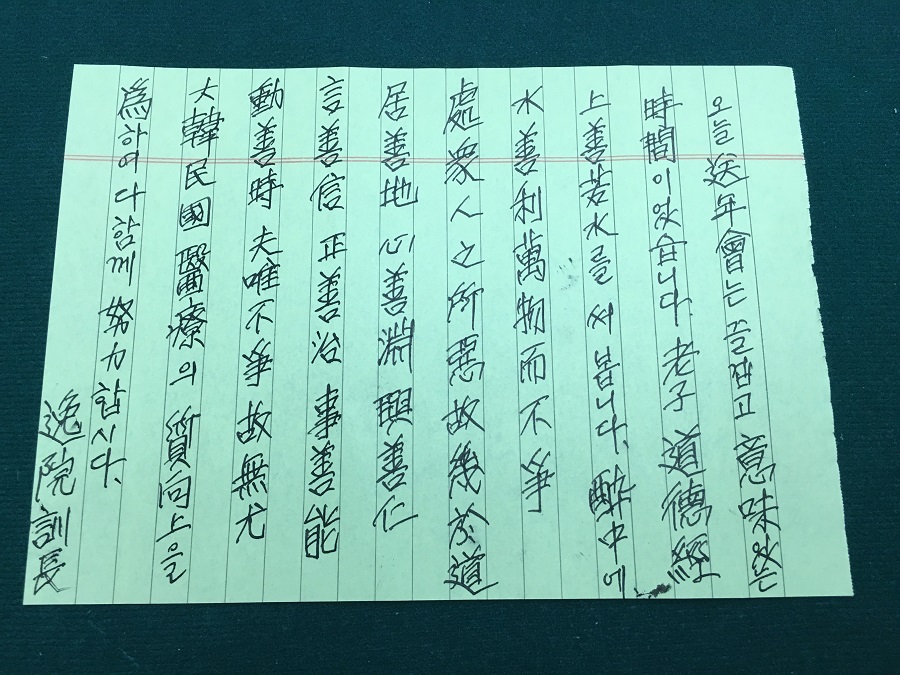 오늘 送年會는 즐겁고 意味있는
時間이었습니다. 老子 道德經
上善若水를 써 봅니다. 醉中에
水善利萬物而不爭
處衆人之所惡故幾於道
居善地 心善淵 與善仁
言善信 正善治 事善能
動善時 夫唯不爭故無尤
大韓民國 醫療의 質向上을
爲하여 다함께 努力합시다.
逸院訓長